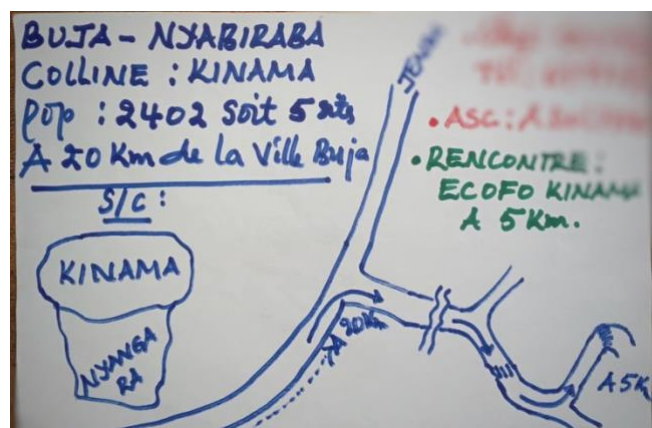 BUJA - NYABIRABA
COLLINE : KINAMA
pop : 2402 soit 5
A 20 Km de la Ville Buja
S/C :
KINAMA
NYANGA
RA
• ASC :
• RENCONTRE :
ECOFO KINAMA
A 5 Km.
A 20 Km
A 5 Km